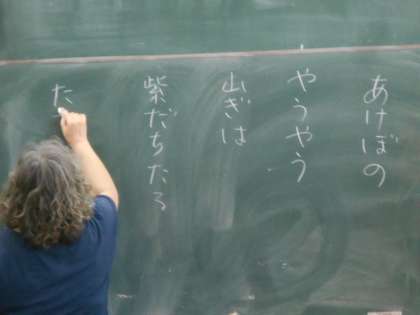 あけぼの
やうやう
山ぎは
紫だちたる
た